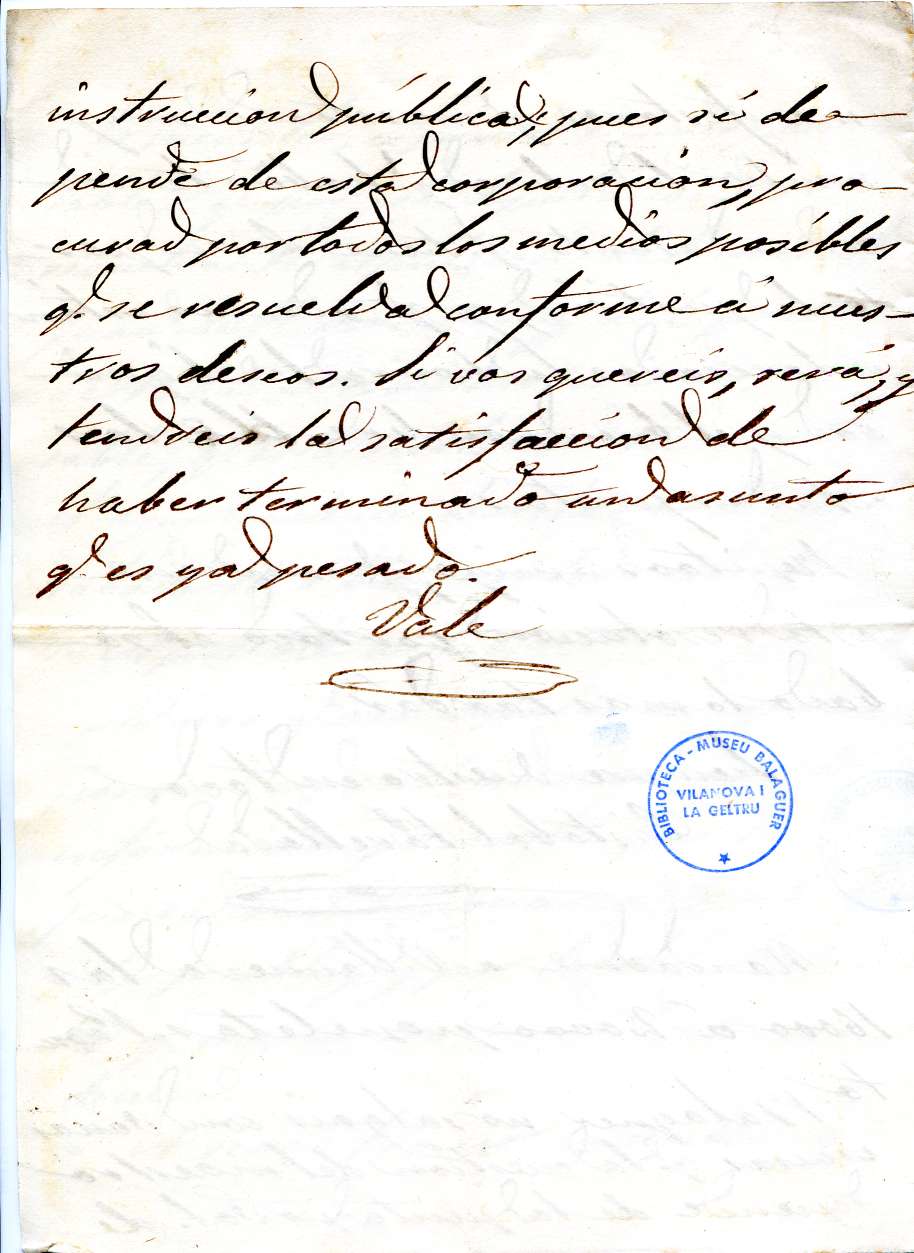 instruccion pública; pues si de-
pende de esta corporacion, pro-
curad por todos los medios posibles
q.e se resuelva conforme á nues-
tros deseos. Si vos quereis, será, y
tendreis la satisfaccion de
haber terminado un asunto
q.e es ya pesado.
Vale
BIBLIOTECA - MUSEU BALAGUER
VILANOVA I
LA GELTRU